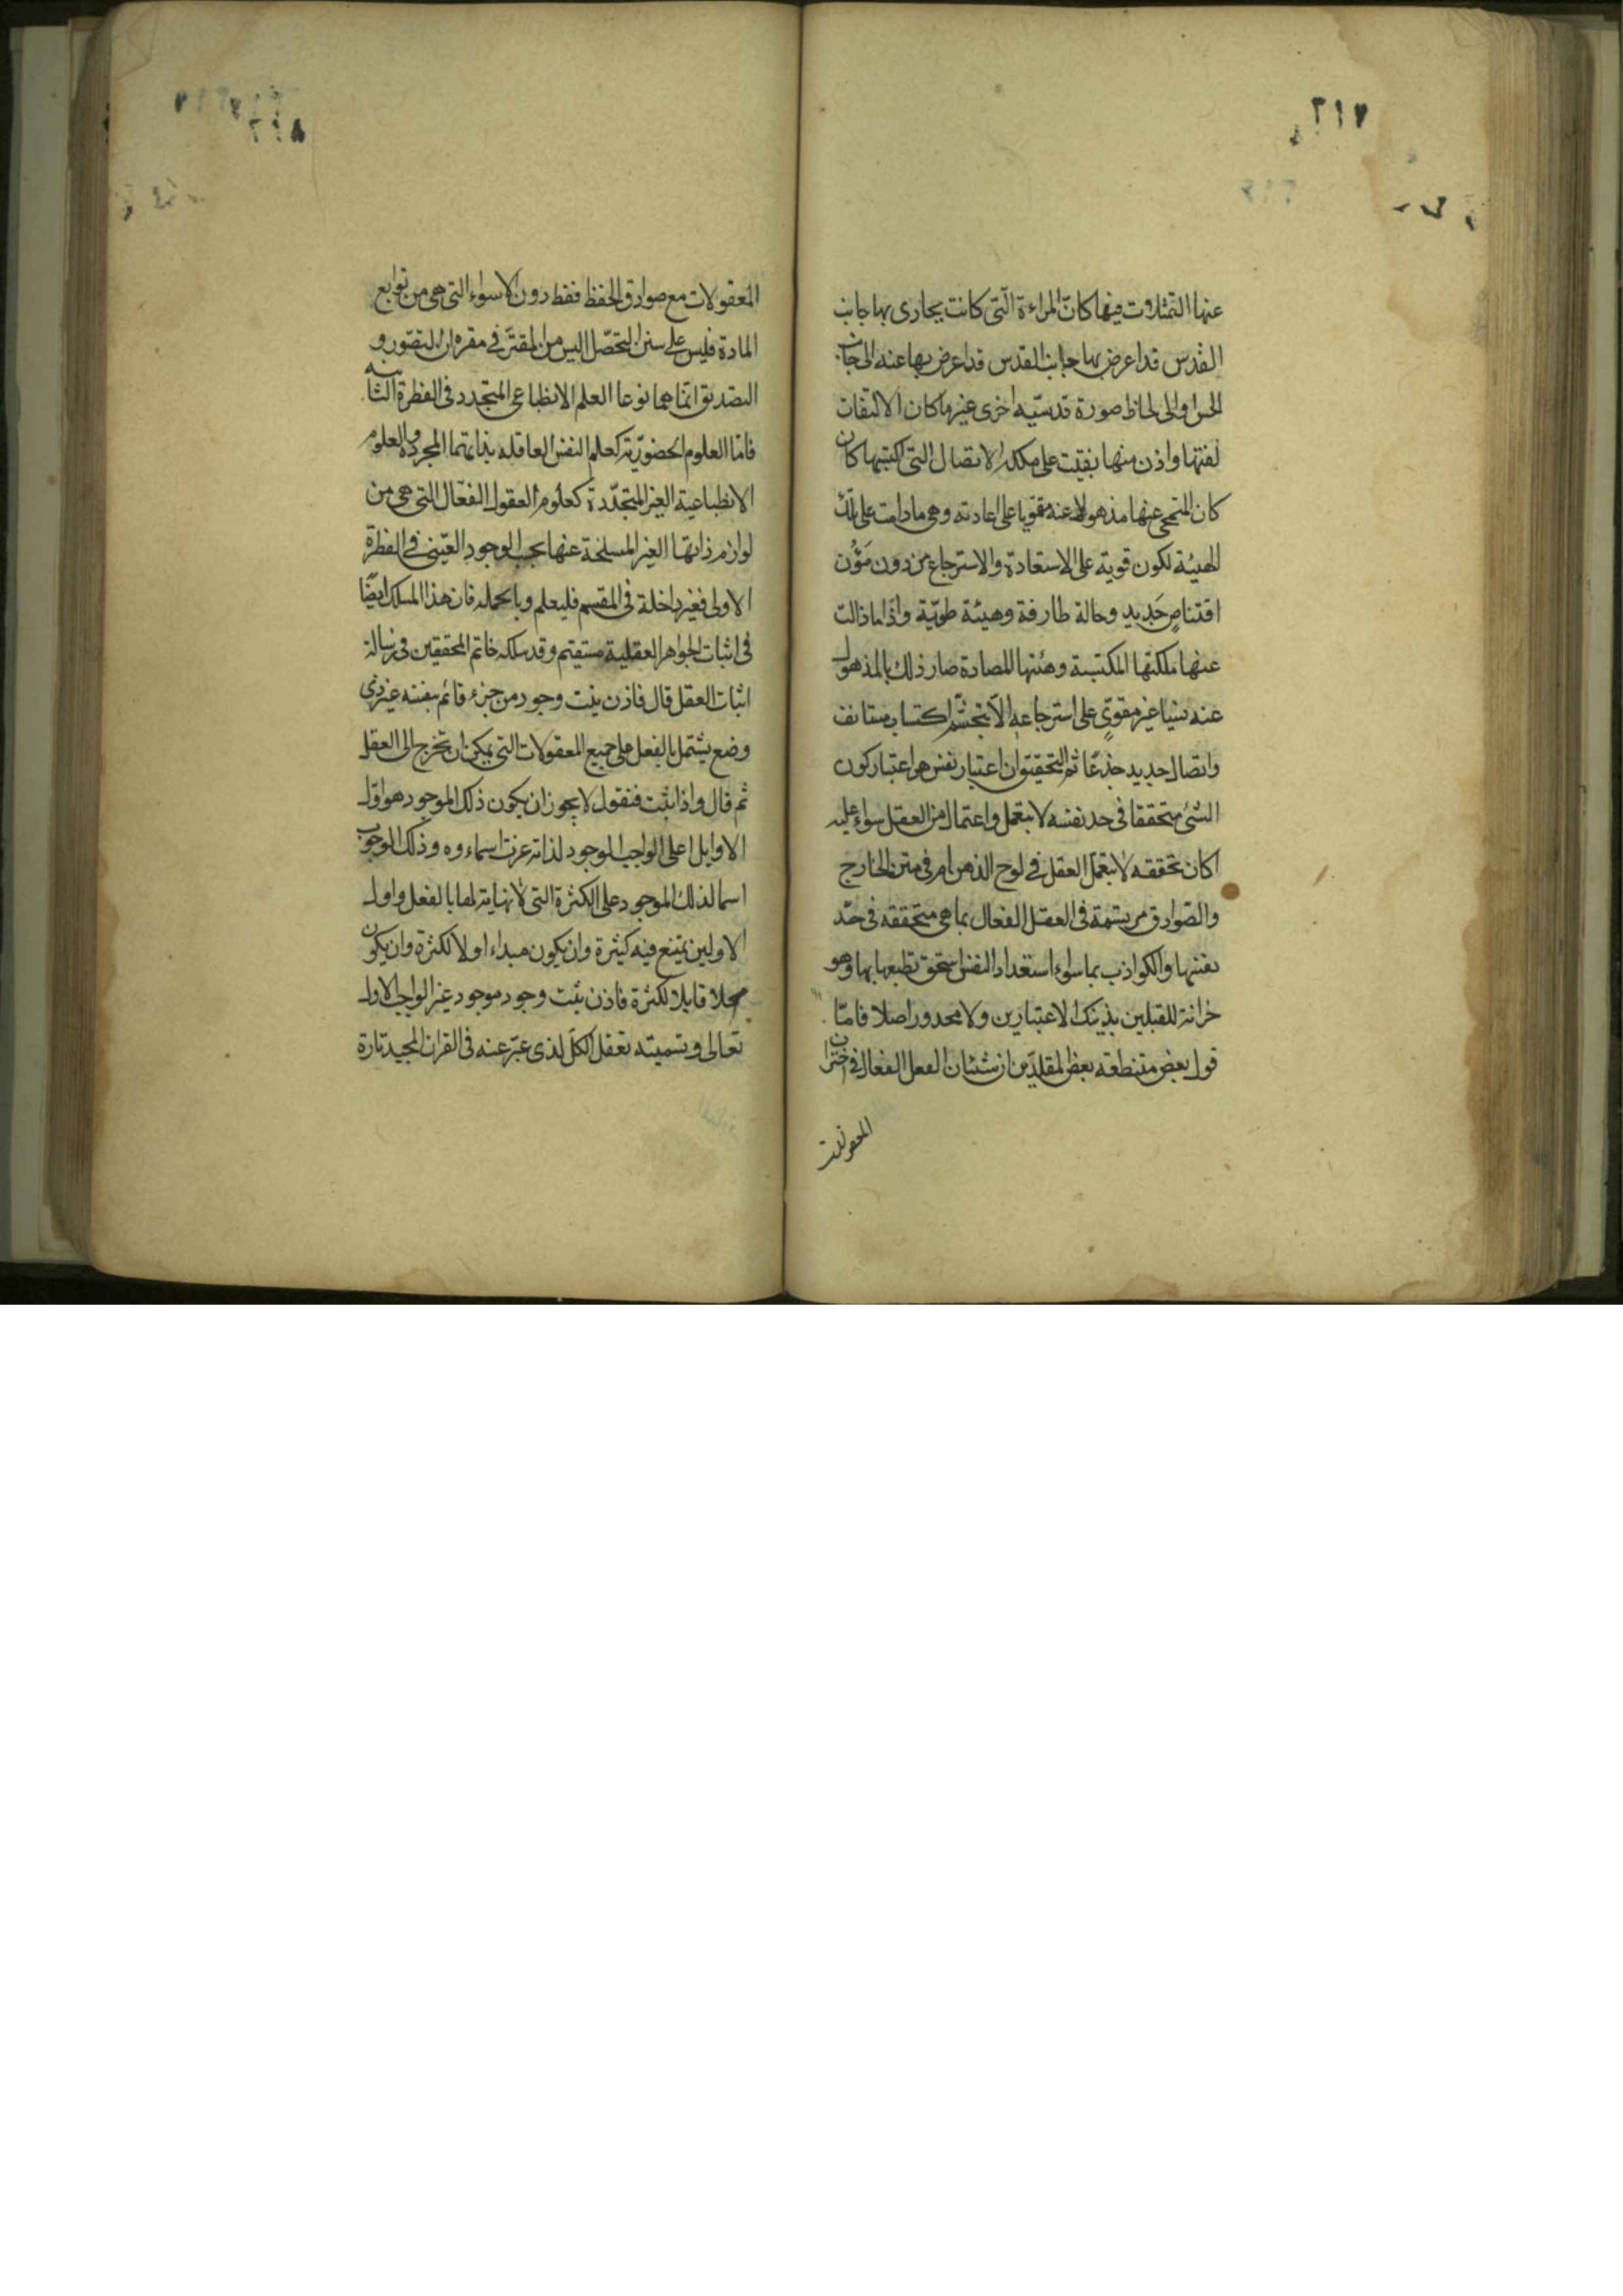 ٢١٧
عنها التمثلات فيها كان المراءة التى كانت يحاذى بها جانب
القدس قد اعرض بها جانب القدس قد اعرض بها عنه الى جانب
الحس اوالى لحاظ صورة قدسيه اخرى غيرها كان الالتفات
لفتها واذن منها بقيت على ملكة الاتصال التى اكتسبها كان
كان المتمحى عنها مذهولا عنه مقويا على اعادته وهى مادامت على تلك
الهيئة تكون قوية على الاستعادة والاسترجاع من دون مؤن
اقتناص جديد وحالة طارفة وهيئة طويّة واذا ما زالت
عنها ملكتها المكتسبة وهئتها المصادة صار ذلك بالمذهول
عنه نسيا غير مقوىٍ على استرجاعه الا بتجشّم اكتساب مستانف
واتصال جديد جذعًا ثم التحقيق ان اعتبار نفس هو اعتبار كون
الشئ متحققا فى حد نفسه لا بتعمل واعتمال من العقل سواء عليه
اكان تحققه لا بتعمل العقل فى لوح الذهن ام فى متن الخارج
والصوادق مرتسمة فى العقل الفعال بما هى متحققه فى حدّ
نفسها والكواذب بما سواء استعداد النفس استحق تطبعها بها وهو
خزانة للقبلين بذينك الاعتبارين ولا محدور اصلا فامّا
قول بعض متنطعه بعض المقلدين ان شئان الفعل الفعال فى اختزان
المعقولات
٢١٨
المعقولات مع صوادق الحفظ فقط دون الاسواء التى هى من توابع
المادة فليس على سنن التحصّل اليس من المقتّر فى مقره ان التصوّر و
التصديق انما هما نوعا العلم الانطباعى المتجدد فى الفطرة الثانيه
فامّا العلوم الحضوريّة كعلم النفس العاقله بذاتها المجردة والعلوم
الانطباعية الغير المتجدّدة كعلوم العقول الفعّال التى هى من
لوازم ذاتها الغير المسلخة عنها بحسب الوجود العينى فى الفطرة
الاولى فغير داخلة فى المقسم فليعلم وبالجمله فان هذا المسلك ايضًا
فى اثبات الجواهر العقلية مستقيم وقد سلكه خاتم المحققين فى رسالة
اثبات العقل قال فاذن يثبت وجود من جزء قائم بنفسه غير ذى
وضع يشتمل بالفعل على جميع المعقولات التى يمكن ان تخرج الى العقل
ثم قال واذا ثبت فنقول لا يجوز ان يكون ذلك الموجود هو اوّل
الاوايل اعلى الواجب الموجود لذاته عزت اسماءوه وذلك لوجوب
اسما لذلك الموجود على الكثرة التى لا نهاية لها بالفعل واول
الاولين يمتنع فيه كثيرة وان يكون مبداء اولا لكثرة وان يكون
محلا قابلا لكثرة فاذن ثبت وجود موجود غير الواجب الاول
تعالى وتسميته بعقل الكل لذى عبّر عنه فى القران المجيد تارة